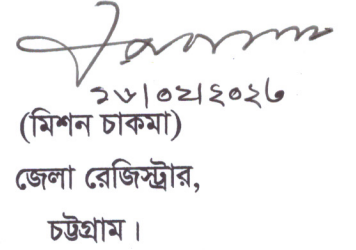 ২৮|০২|২০২৬
(মিশন চাকমা)
জেলা রেজিস্ট্রার,
চট্টগ্রাম।